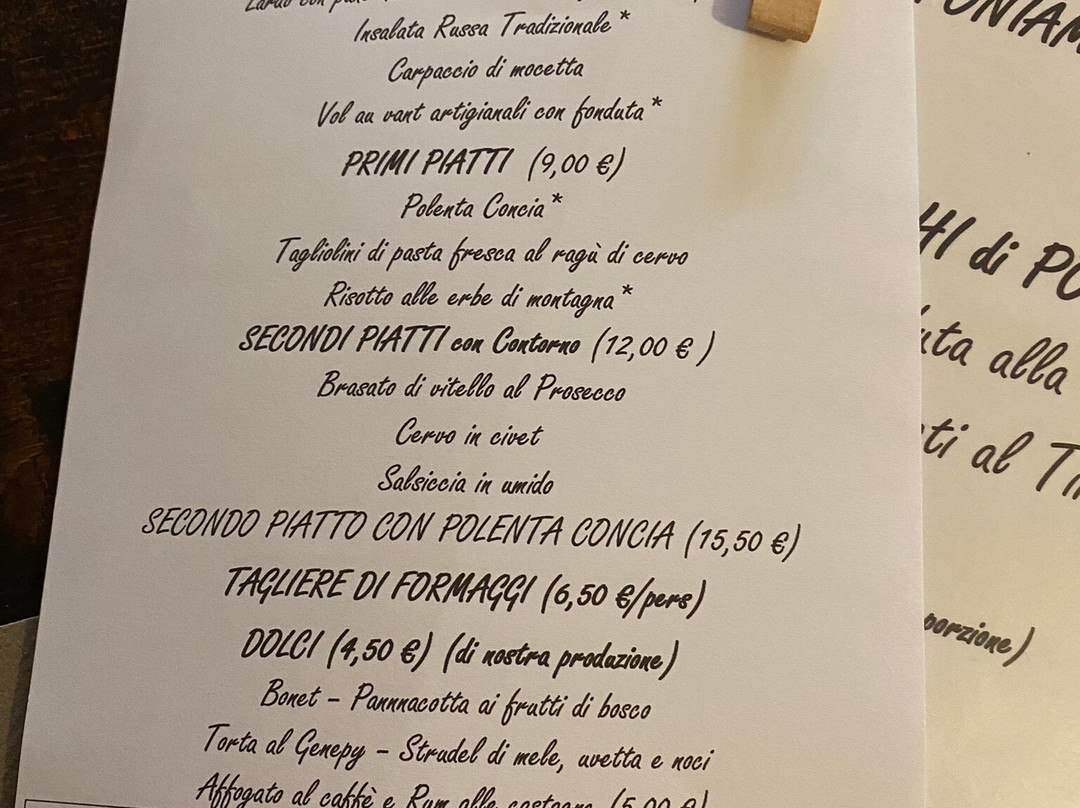 Lardo con
Insalata Russa Tradizionale*
Carpaccio di mocetta
Vol au vant artigianali con fonduta*
PRIMI PIATTI (9,00 €)
Polenta Concia*
Tagliolini di pasta fresca al ragù di cervo
Risotto alle erbe di montagna*
SECONDI PIATTI con Contorno (12,00 € )
Brasato di vitello al Prosecco
Cervo in civet
Salsiccia in umido
SECONDO PIATTO CON POLENTA CONCIA (15,50 €)
TAGLIERE DI FORMAGGI (6,50 €/pers)
DOLCI (4,50 €) (di nostra produzione)
Bonet – Pannnacotta ai frutti di bosco
Torta al Genepy – Strudel di mele, uvetta e noci
Affogato al caffè e Rum alle castagne (5,00 €)
di
alla
al
porzione)